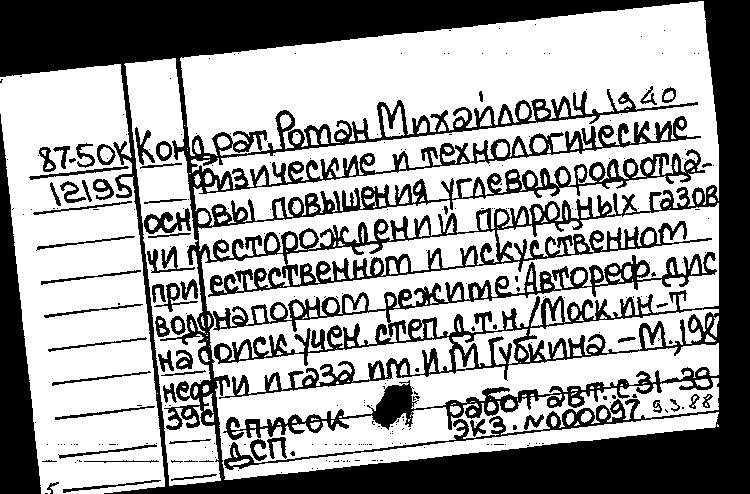 87-50К Кондрат, Роман Михайлович, 1940
12195 Физические и технологические
основы повышения углеводородоотда-
чи месторождений природных газов
при естественном и искусственном
водонапорном режиме: Автореф. дис
на соиск. учен. степ. д.т.н. / Моск. ин-т
нефти и газа им. И.М. Губкина. - М., 198
39с
список работ авт.: с 31-39.
ДСП. экз. N000097. 9.3.88
5